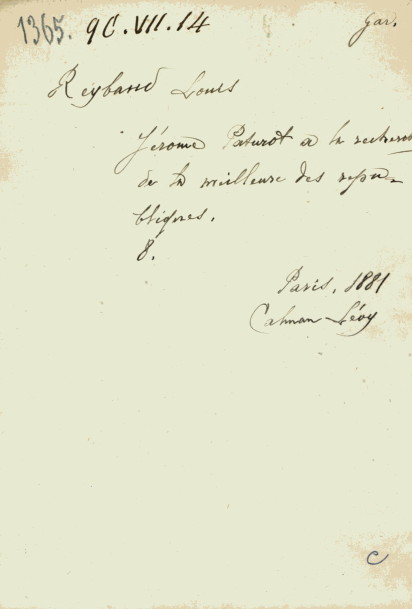 1365. 9C.VII.14 Gar.
Reybaud Louis
Jérome Paturot a la recherche
de la meilleure des repu-
bliques.
8.
Paris, 1881
Calman-Lévy
C